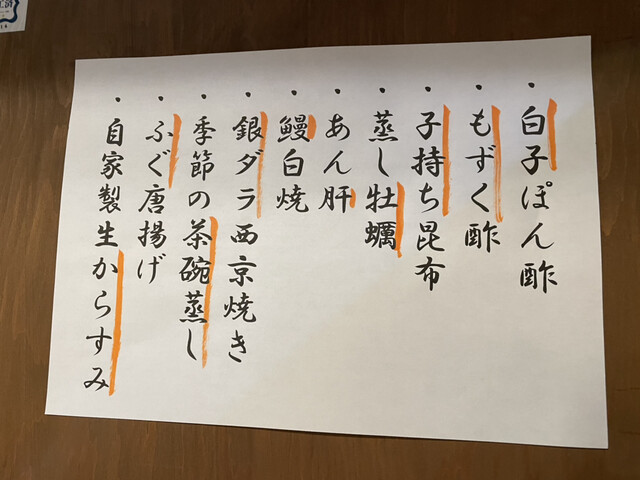 ・白子ぽん酢
・もずく酢
・子持ち昆布
・蒸し牡蠣
・あん肝
・鰻白焼
・銀ダラ西京焼き
・季節の茶碗蒸し
・ふぐ唐揚げ
・自家製生からすみ